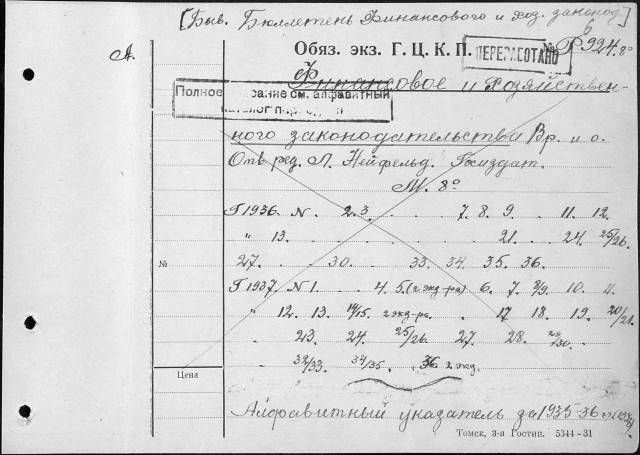 [Быв. Бюллетень Финансового и хоз. законод]
А.
Обяз. экз. Г. Ц. К. П.
ПЕРЕРАБОТАНО
№ Р 924.8°
Финансовое и Хозяйствен-
Полное описание см. алфавитный
каталог
ного законодательства Вр. и о.
Отв. ред. Л. Нейфельд. Госиздат.
М. 8°
Г 1936. N . 2. 3. . . . 7. 8. 9. . . 11. 12.
" 13. . . . . . . 21. . . 24. 25/26.
27. . . 30. . . 33. 34. 35. 36.
№
Г 1937. N 1. . . 4. 5. (2 экз-ра) 6. 7. 8/9. 10. 11.
" 12. 13. 14/15. 2 экз-ра. . . 17 18. 19. 20/21.
" 23. 24. 25/26. 27. 28. 29/30.
" 32/33. 34/35. 36 2 экз.
Цена
Алфавитный указатель за 1935-36 г.
Томск, 3-я Гостип. 5344-31